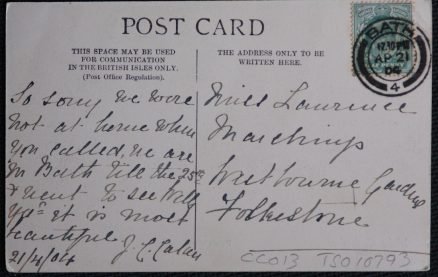 POST CARD
THIS SPACE MAY BE USED
FOR COMMUNICATION
IN THE BRITISH ISLES ONLY.
(Post Office Regulation).
THE ADDRESS ONLY TO BE
WRITTEN HERE.
BATH
12.10 PM
AP 21
04
4
So sorry we were
not at home when
you called, we are
in Bath till the 25th
& went to see Wells
it is most
beautiful
21/4/04
Miss Lawrence
Westbourne Gardens
Folkestone
CC013 TS010793